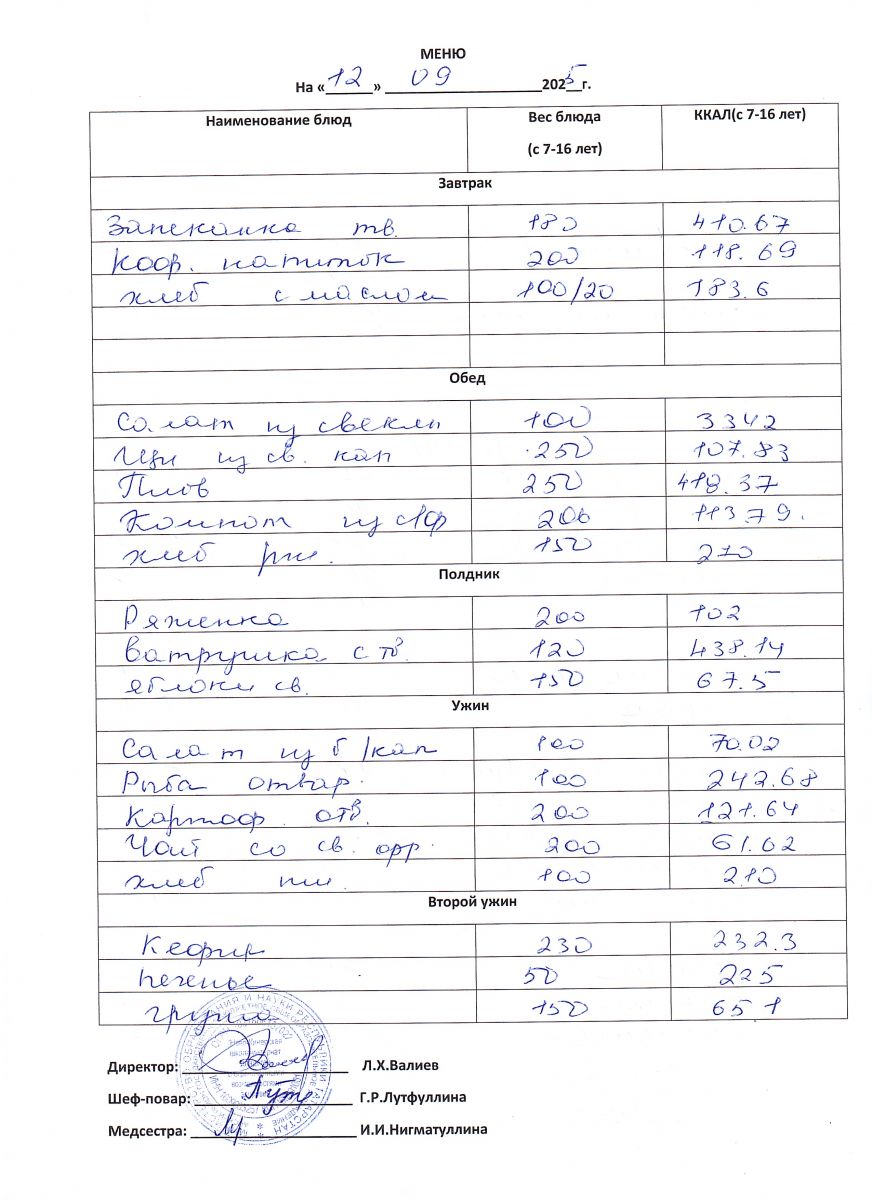 МЕНЮ
На «12» 09 2025 г.
Наименование блюд Вес блюда (с 7-16 лет) ККАЛ(с 7-16 лет)
Завтрак
Запеканка тв. 180 410.67
Коф. напиток 200 118.69
хлеб с маслом 100/20 183.6
Обед
Салат из свеклы 100 3342
Щи из св. кап 250 107.83
Плов 250 418.37
Компот из с/ф 200 113.79.
хлеб рж. 150 270
Полдник
Ряженка 200 102
Ватрушка с тв. 120 438.14
яблоки св. 150 67.5
Ужин
Салат из б/кап 100 70.02
Рыба отвар. 100 242.68
Картоф. отв. 200 121.64
Чай со св. 200 61.02
хлеб пш. 100 210
Второй ужин
Кефир 230 232.3
печенье 50 225
груша 150 651
Директор: Л.Х.Валиев
Шеф-повар: Г.Р.Лутфуллина
Медсестра: И.И.Нигматуллина